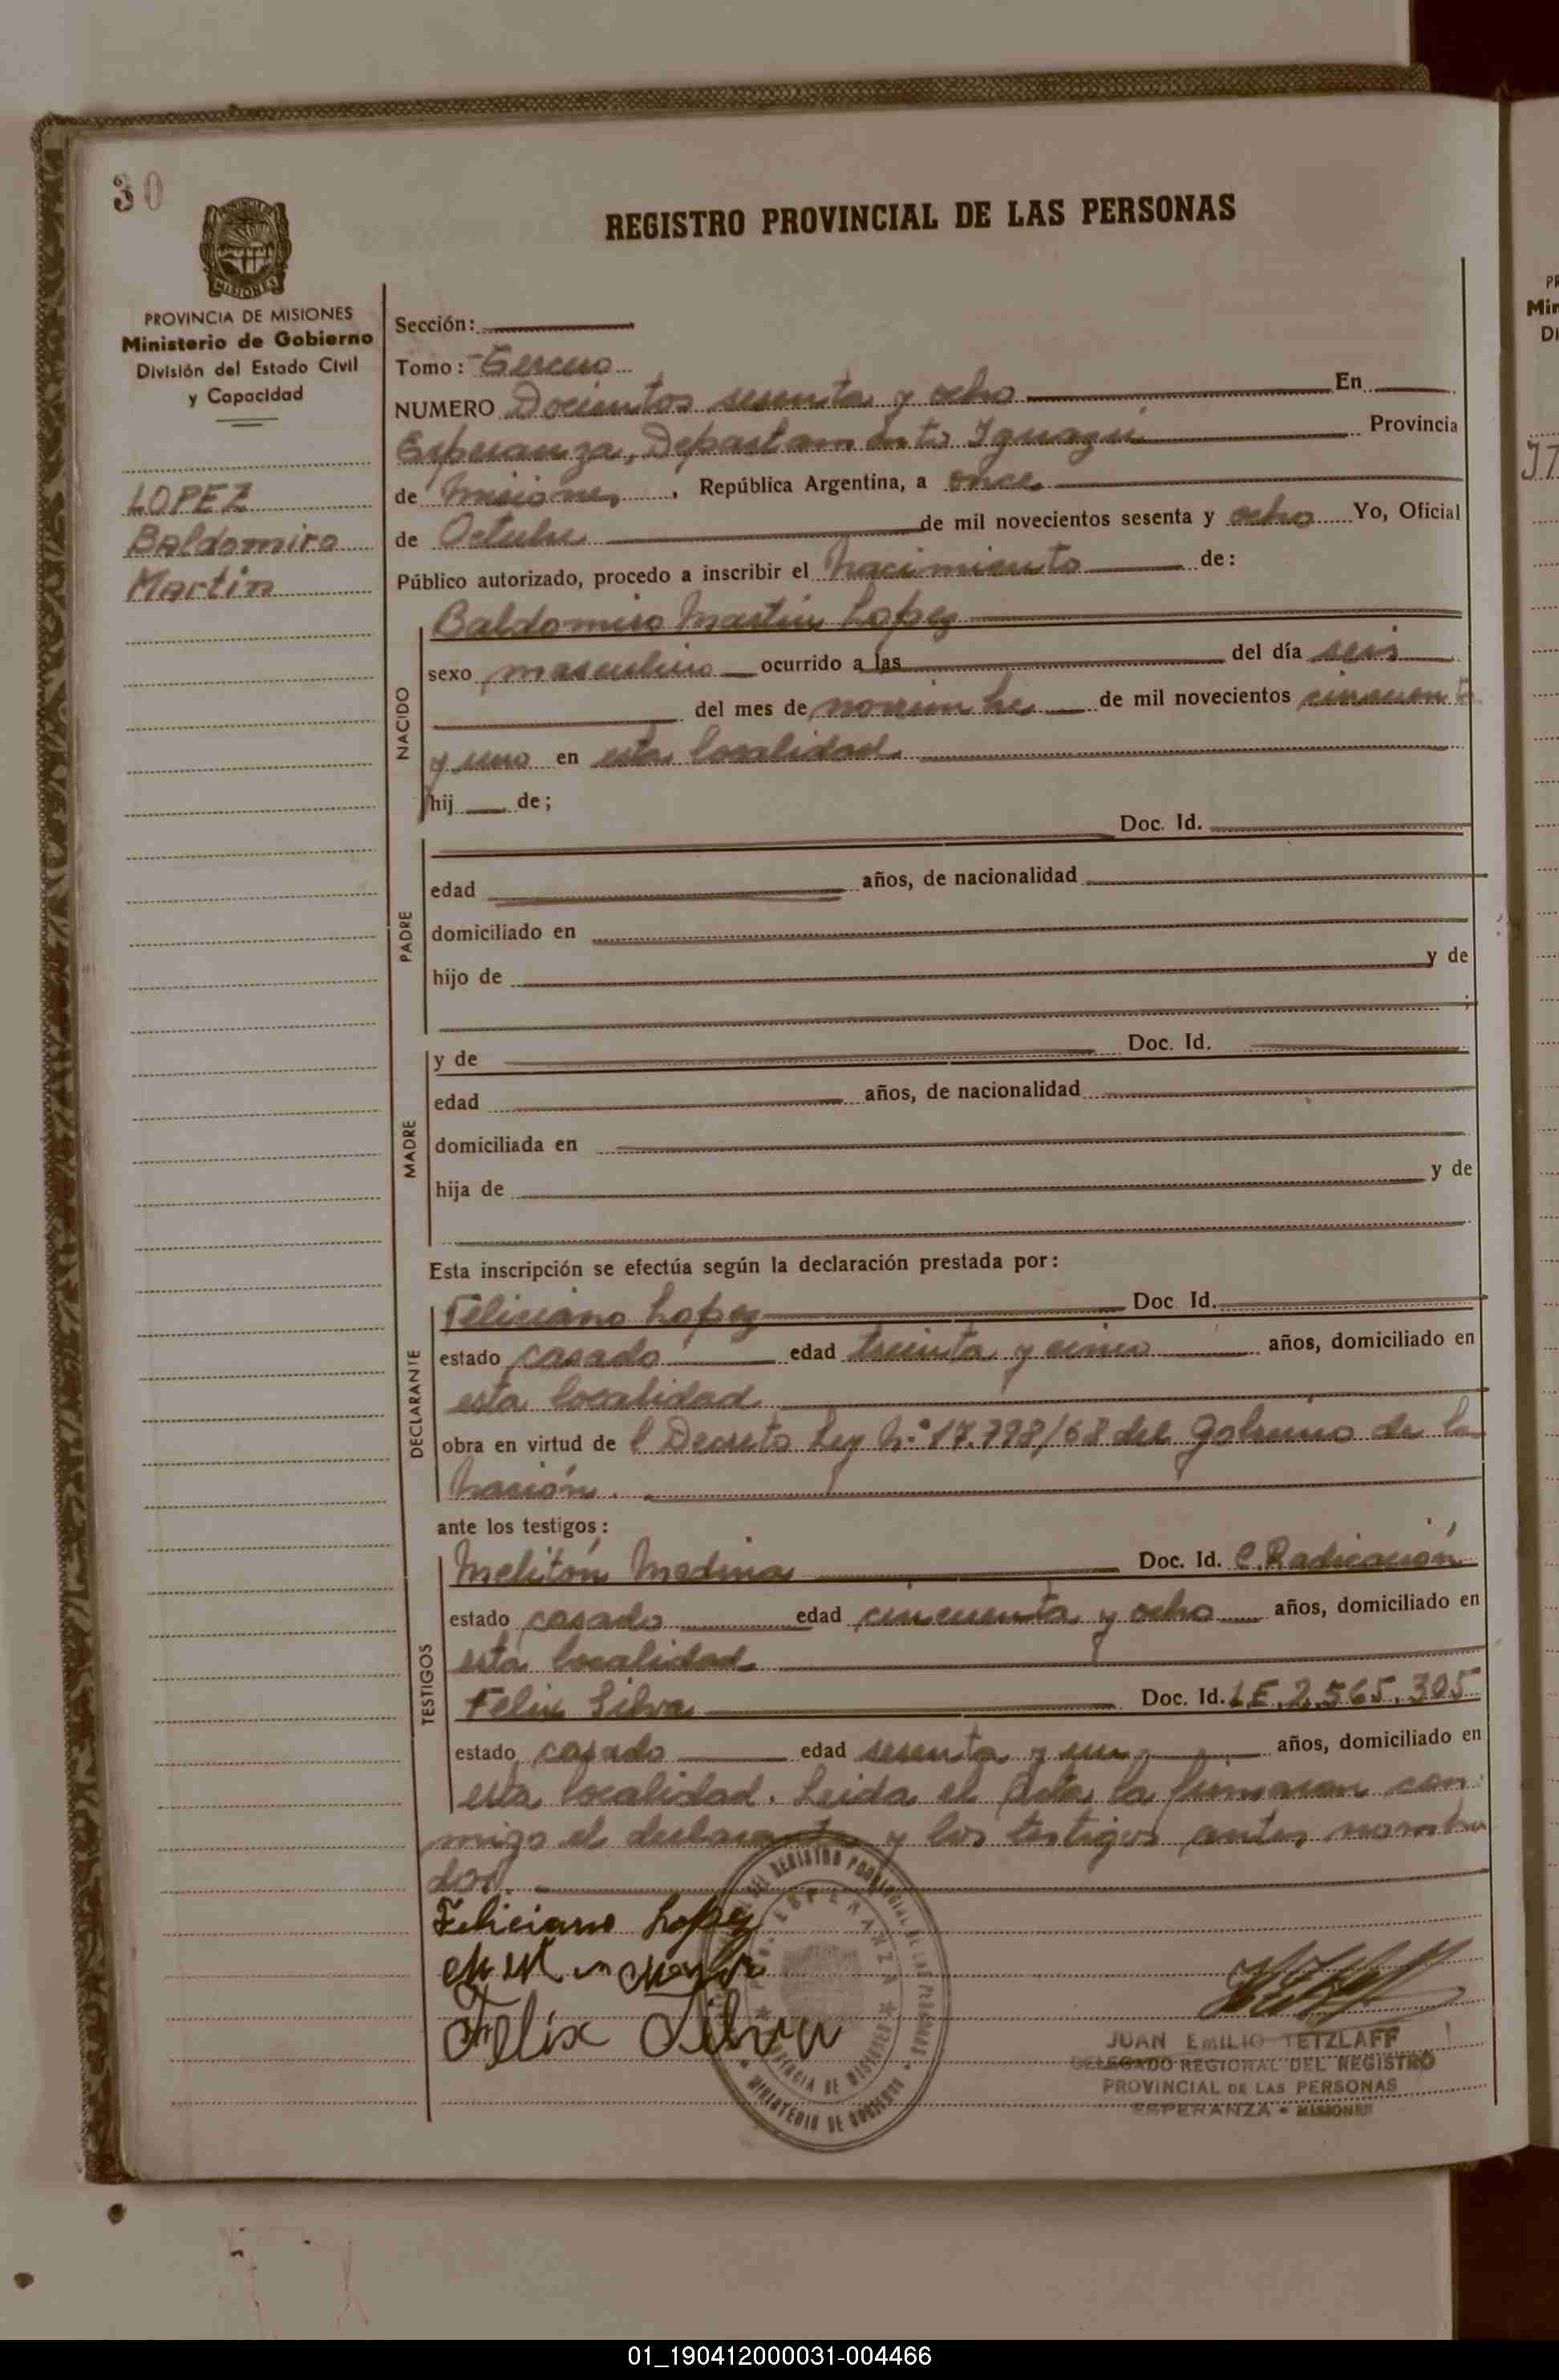 30
REGISTRO PROVINCIAL DE LAS PERSONAS
MISIONES
PROVINCIA DE MISIONES
Ministerio de Gobierno
División del Estado Civil
y Capacidad
LOPEZ
Baldomiro
Martin
Sección:
Tomo: Tercero
NUMERO Docientos sesenta y ocho En
Esperanza, Departamento Iguazú Provincia
de Misiones, República Argentina, a once
de Octubre de mil novecientos sesenta y ocho Yo, Oficial
Público autorizado, procedo a inscribir el Nacimiento de:
NACIDO
Baldomiro Martin Lopez
sexo masculino ocurrido a las del día seis
del mes de noviembre de mil novecientos cincuenta
y uno en esta localidad
hij de;
PADRE
Doc. Id.
edad años, de nacionalidad
domiciliado en
hijo de y de
;
MADRE
y de Doc. Id.
edad años, de nacionalidad
domiciliada en
hija de y de
Esta inscripción se efectúa según la declaración prestada por:
DECLARANTE
Feliciano Lopez Doc. Id.
estado casado edad treinta y cinco años, domiciliado en
esta localidad
obra en virtud de l Decreto Ley N.º 17.798/68 del Gobierno de la
Nación.
ante los testigos:
TESTIGOS
Melitón Medina Doc. Id. C. Radicación
estado casado edad cincuenta y ocho años, domiciliado en
esta localidad
Felix Silva Doc. Id. LE. 2.565.305
estado casado edad sesenta y un años, domiciliado en
esta localidad. Leida el Acta la firmaran con
migo el declarante y los testigos antes nombra
dos.
Feliciano Lopez
Felix Silva
REGISTRO PROVINCIAL DE LAS PERSONAS
ESPERANZA
PROVINCIA DE MISIONES
MINISTERIO DE GOBIERNO
JUAN EMILIO TETZLAFF
DELEGADO REGIONAL DEL REGISTRO
PROVINCIAL DE LAS PERSONAS
ESPERANZA • MISIONES
01_190412000031-004466